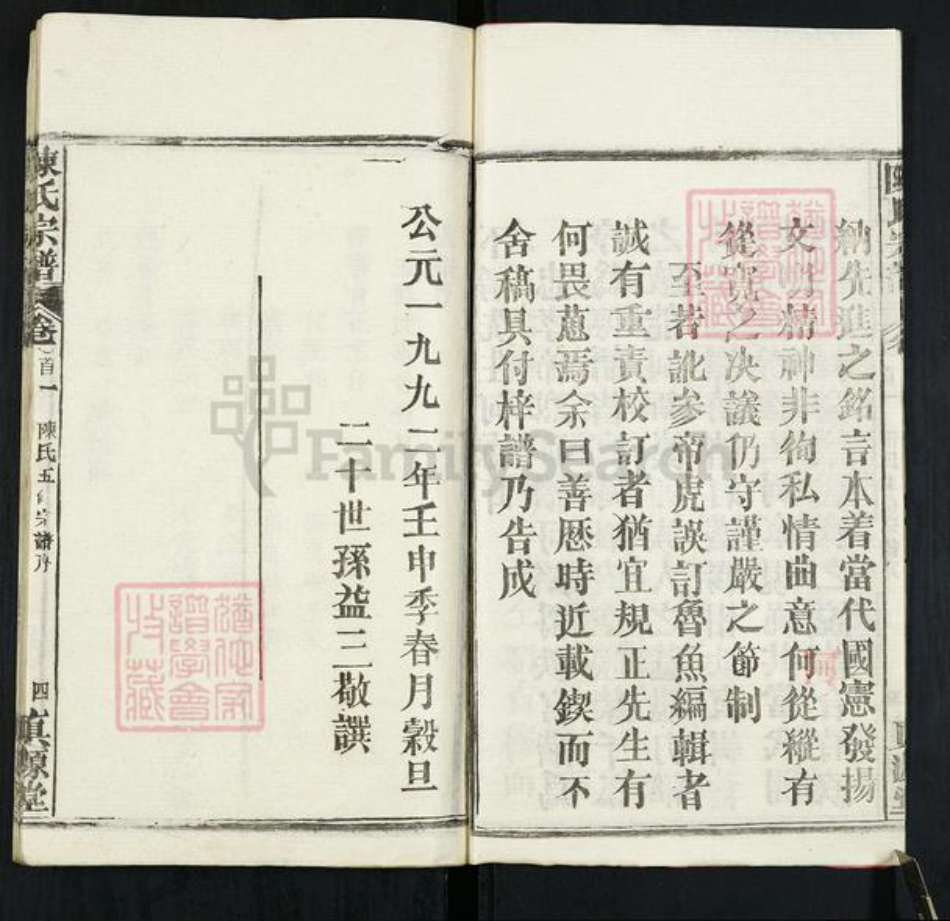 納先進之銘言本着當代國憲發揚
文明精神非徇私情曲意何從縱有
從寬之決議仍守謹嚴之節制
至若訛參帝虎誤訂魯魚編輯者
誠有重責校訂者猶宜規正先生有
何畏葸焉余曰善歷時近載鍥而不
舍稿具付梓譜乃告成
公元一九九二年壬申季春月穀旦
二十世孫益三敬譔
陳氏宗譜
卷首一
陳氏五修宗譜序
四
真源堂
FamilySearch